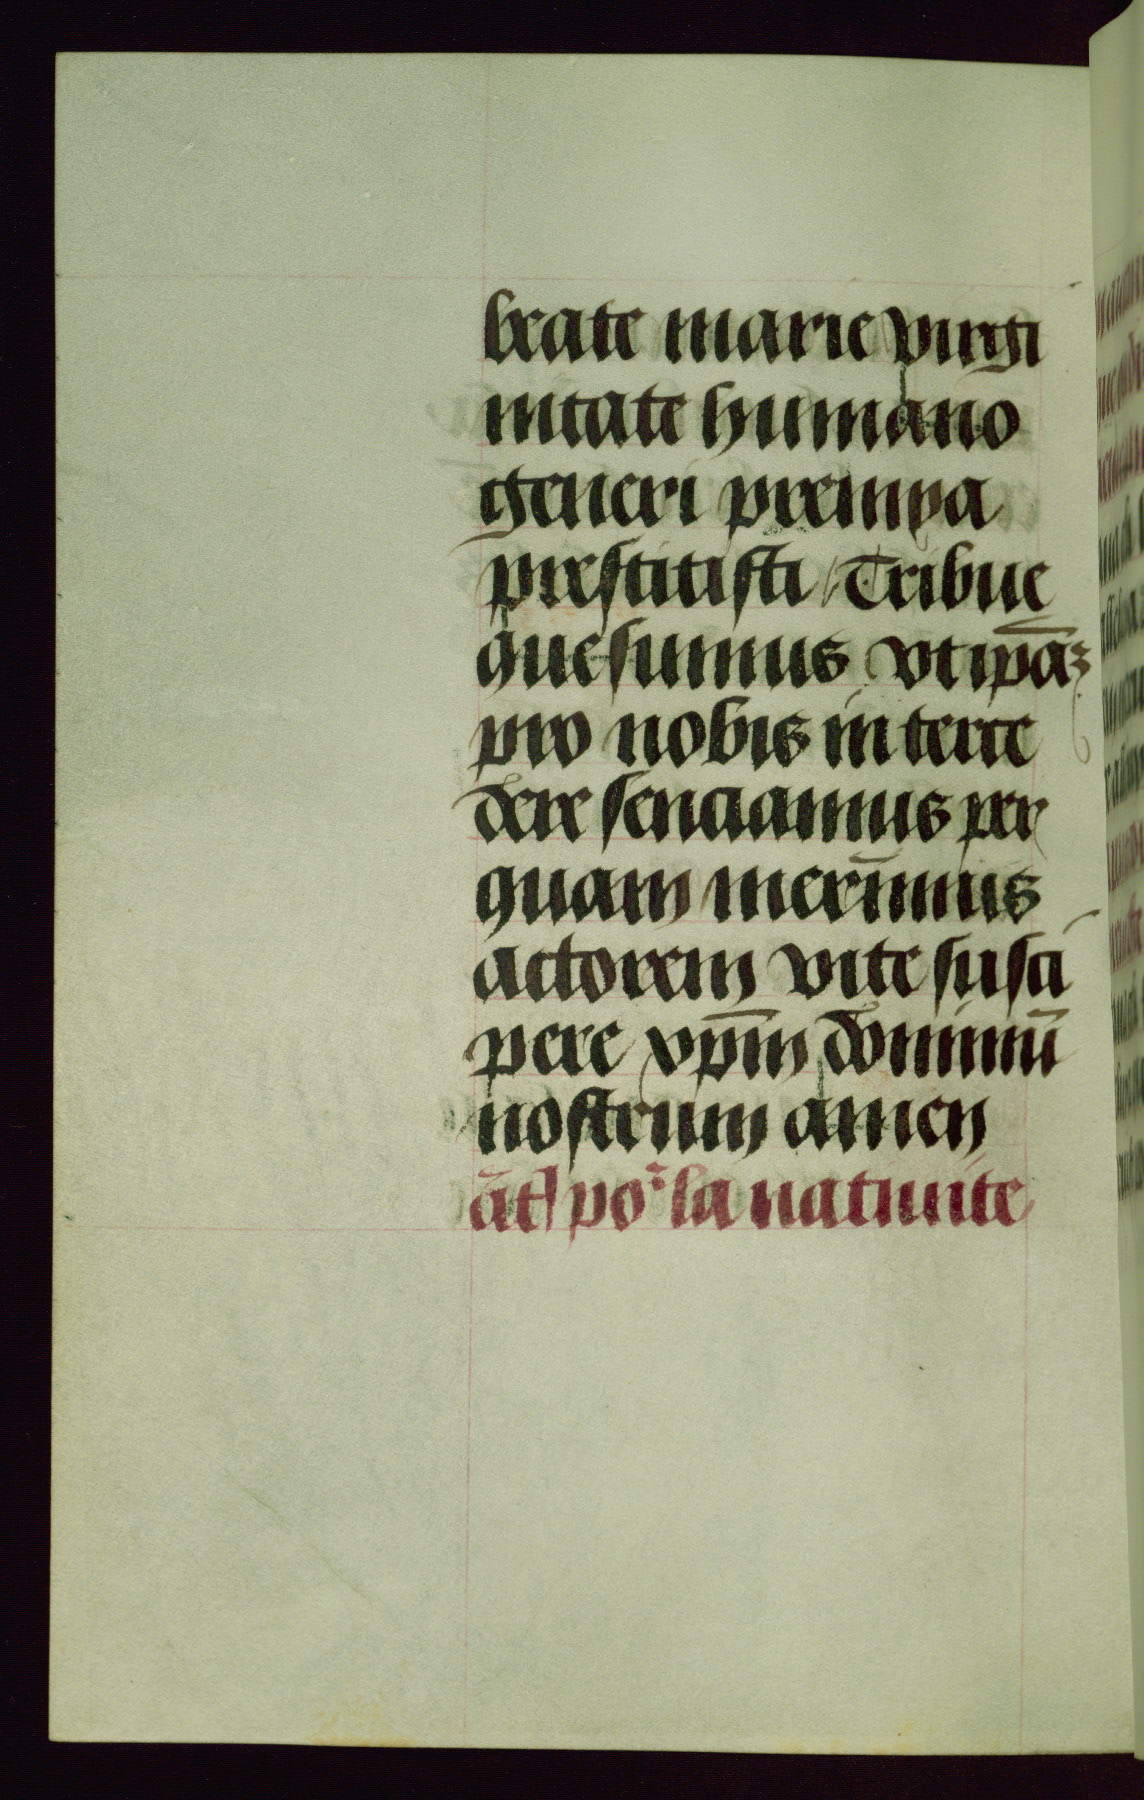 beate marie virgi
nitate humano
generi premya
prestitisti / Tribue
quesumus vt ipāꝫ
pro nobis interce
dere senciamus per
quam merūmus
actorem vite susci
pere xp̄m dominū
nostrum amen
āt poᷣ la natiuite